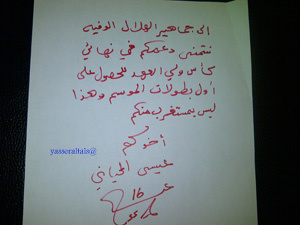 الى جماهير الهلال الوفيه
نتمنى دعمكم في نهائي
كأس ولي العهد للحصول على
أول بطولات الموسم وهذا
ليس بمستغرب منكم
أخوكم
عيسى المحياني
16
yasseraltals@